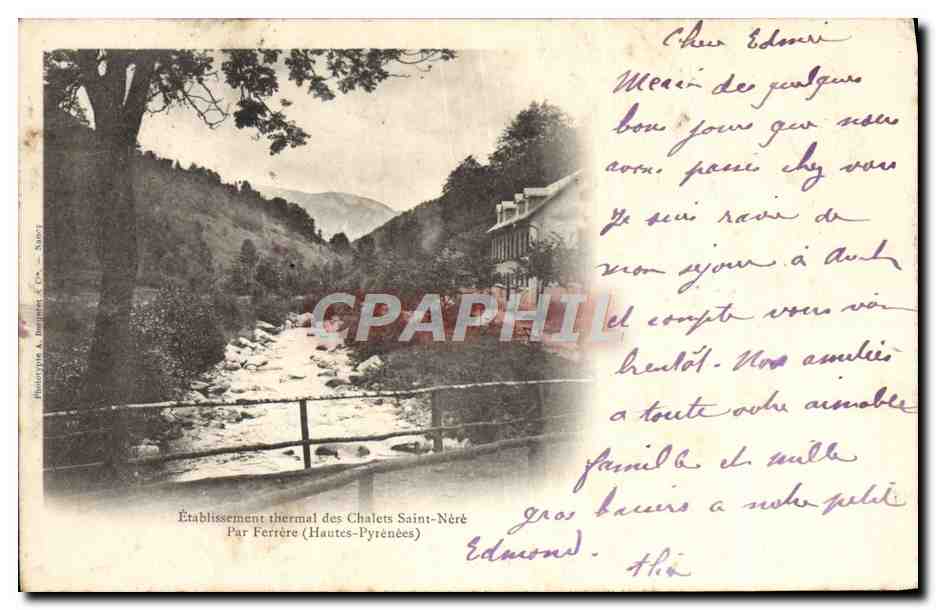 Cher Edmir
Merci des quelques
bons jours que nous
avons passés chez vous
Je suis ravie de
mon sejour à
et compte vous voir
bientôt. Nos amitiés
a toute votre aimable
famille et mille
gros baisers a notre petit
Edmond.
Alix
Phototypie A. Bergeret & Cie. — Nancy
CPA PHIL
Établissement thermal des Chalets Saint-Nérè
Par Ferrère (Hautes-Pyrénées)